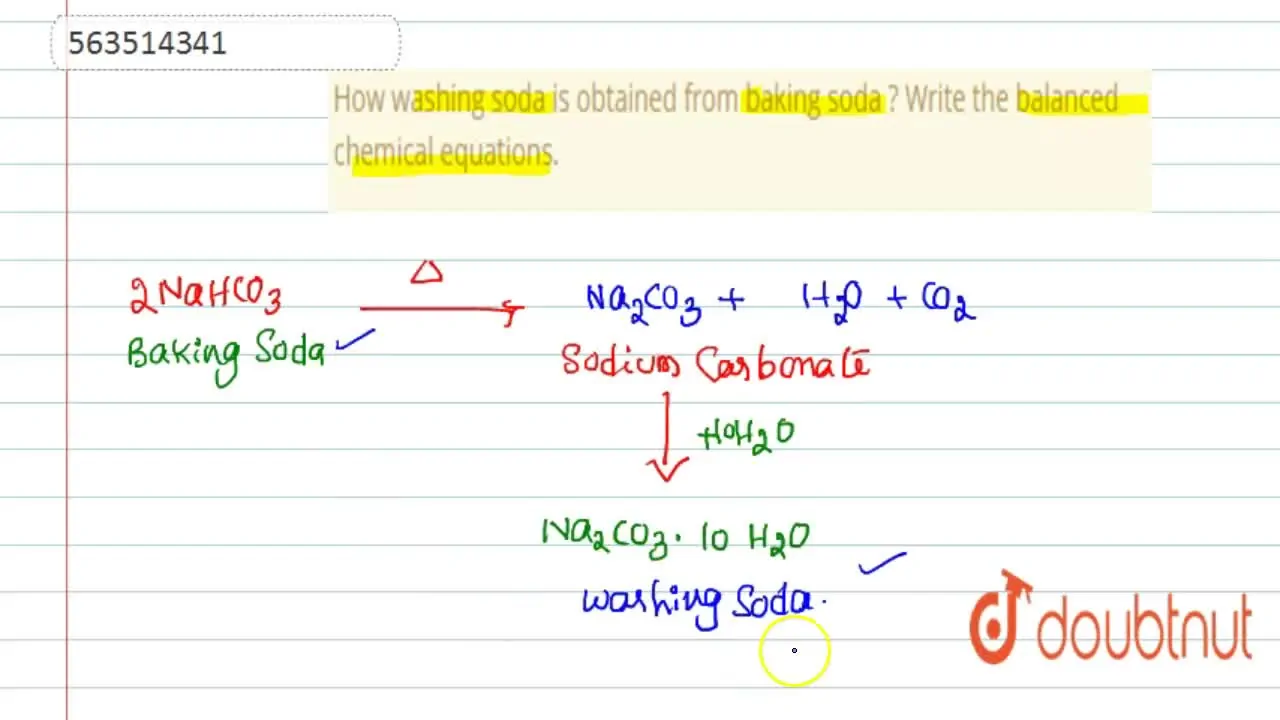 563514341
How washing soda is obtained from baking soda ? Write the balanced
chemical equations.
2NaHCO3 Δ Na2CO3 + H2O + CO2
Baking Soda
Sodium Carbonate
+10H2O
Na2CO3. 10 H2O
Washing Soda.
doubtnut